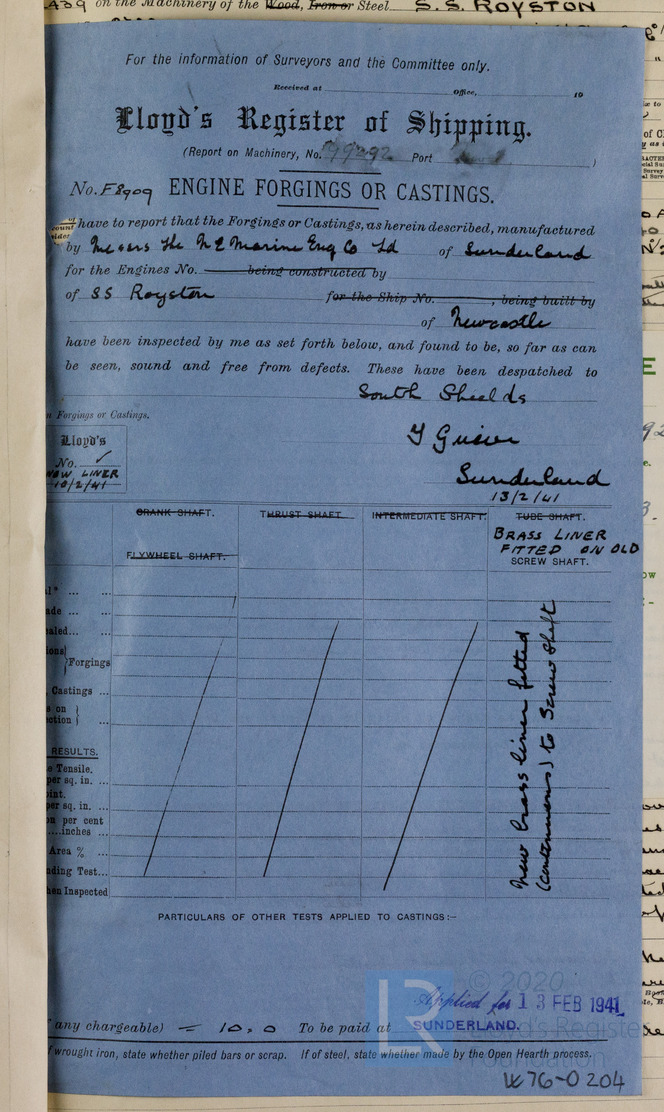 439 on the Machinery of the Wood, Iron or Steel S.S. ROYSTON
For the information of Surveyors and the Committee only.
Received at Office, 19
Lloyd's Register of Shipping.
(Report on Machinery, No. 99292 Port )
No. F8909 ENGINE FORGINGS OR CASTINGS.
have to report that the Forgings or Castings, as herein described, manufactured
by Messrs The N E Marine Eng Co Ld of Sunderland
for the Engines No. being constructed by
of SS Royston for the Ship No. , being built by
of Newcastle
have been inspected by me as set forth below, and found to be, so far as can
be seen, sound and free from defects. These have been despatched to
South Shields
n Forgings or Castings.
Lloyd's
No.
NEW LINER
10/2/41
Sunderland
13/2/41
CRANK SHAFT. THRUST SHAFT INTERMEDIATE SHAFT. TUBE SHAFT.
BRASS LINER
FITTED ON OLD
FLYWHEEL SHAFT. SCREW SHAFT.
Forgings
Castings ...
RESULTS.
e Tensile.
per sq. in. ...
oint.
per sq. in. ...
on per cent
....inches ...
Area % ...
ding Test...
hen Inspected
New brass liner fitted
(continuous) to Screw Shaft
PARTICULARS OF OTHER TESTS APPLIED TO CASTINGS:—
© 2020
Lloyd's Register
Foundation
Applied for 13 FEB 1941
any chargeable) = 10,0 To be paid at SUNDERLAND.
f wrought iron, state whether piled bars or scrap. If of steel, state whether made by the Open Hearth process.
W76-0204